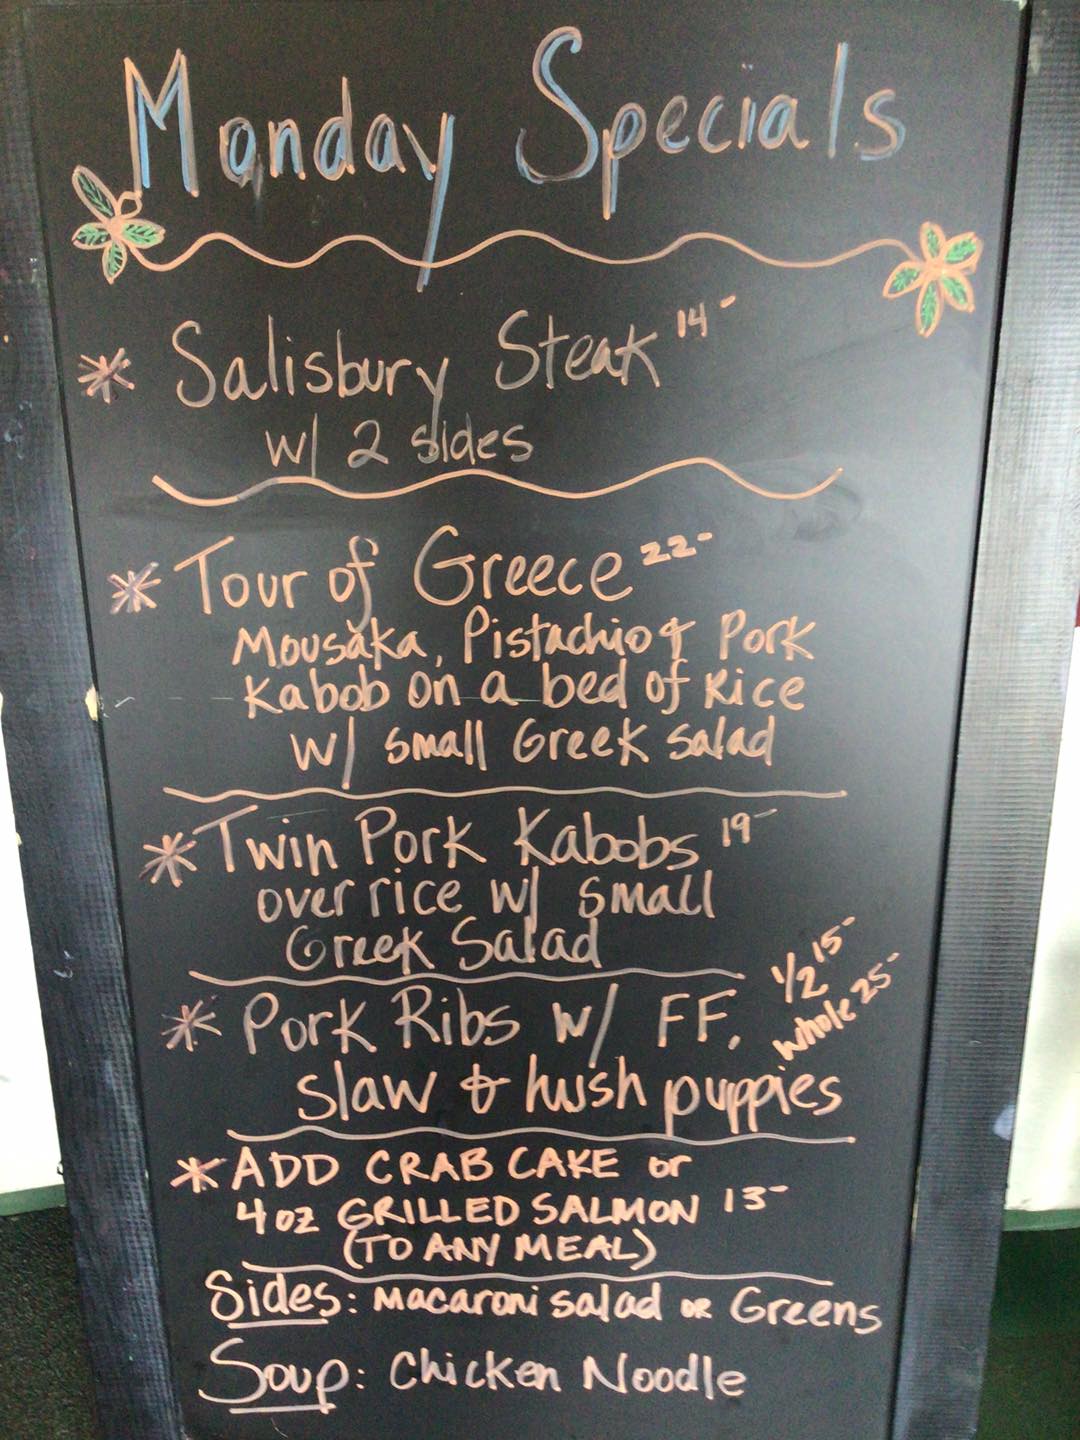 Monday Specials
* Salisbury Steak 14-
w/ 2 sides
* Tour of Greece 22-
Mousaka, Pistachio & Pork
Kabob on a bed of Rice
w/ small Greek salad
* Twin Pork Kabobs 19-
over rice w/ small
Greek Salad
* Pork Ribs w/ FF, 1/2 15-
whole 25-
slaw & hush puppies
* ADD CRAB CAKE or
4 oz GRILLED SALMON 13-
(TO ANY MEAL)
Sides: Macaroni salad or Greens
Soup: Chicken Noodle